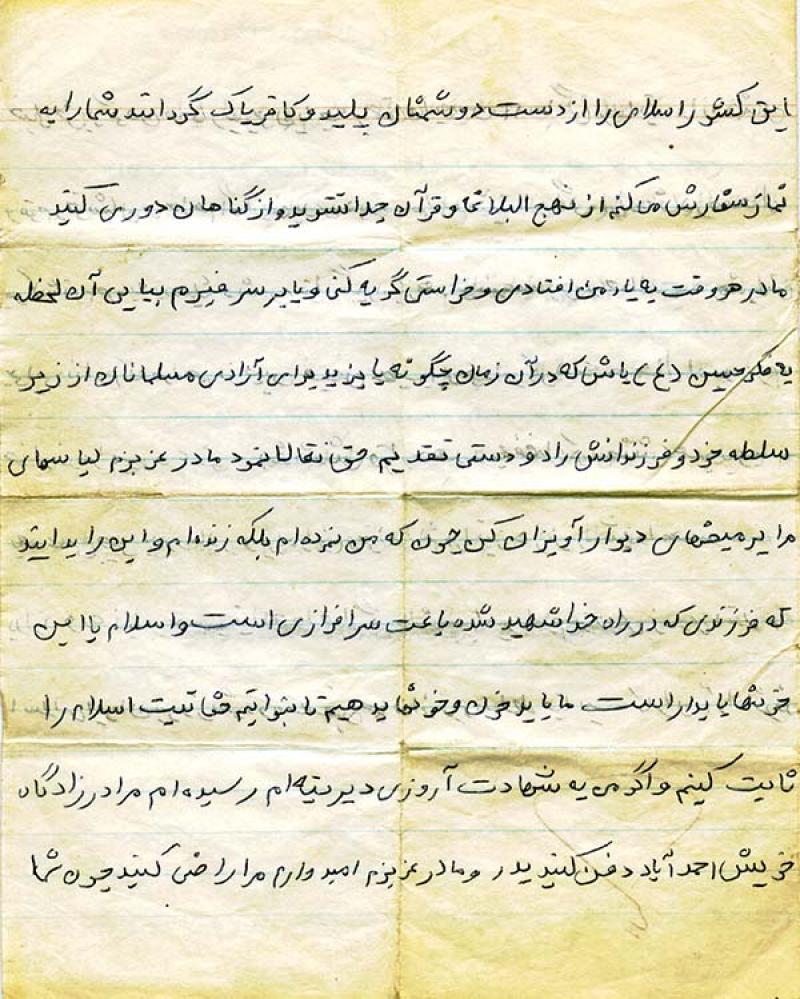 این کشور اسلامی را از دست دوشمنان پلید و کافر پاک گردانند شما را به
نماز سفارش می کنم از نهج البلاغه و قرآن جدا نشوید و از گناهان دوری کنید
مادر هر وقت به یاد من افتادی و خواستی گریه کنی و یا بر سر خبرم بیایی آن لحظه
به فکر حسین (ع) باش که در آن زمان چگونه با یزید برای آزادی مسلمانان از زیر
سلطه خود و فرزندانش را دو دستی تقدیم حق تعالا نمود مادر عزیزم لباسهای
مرا بر میخهای دیوار آویزان کن چون که من نمرده ام بلکه زنده ام و این را بدانید
که فرزندی که در راه خدا شهید شده باعث سرافرازی است و اسلام با این
خونها پایدار است ما باید خون و خونها بدهیم تا بتوانیم حقانیت اسلام را
ثابت کنیم و اگر من به شهادت آروزی دیرینه ام رسیده ام مرا در زادگاه
خویش احمد آباد دفن کنید پدر و مادر عزیزم امیدوارم مرا راضی کنید چون شما